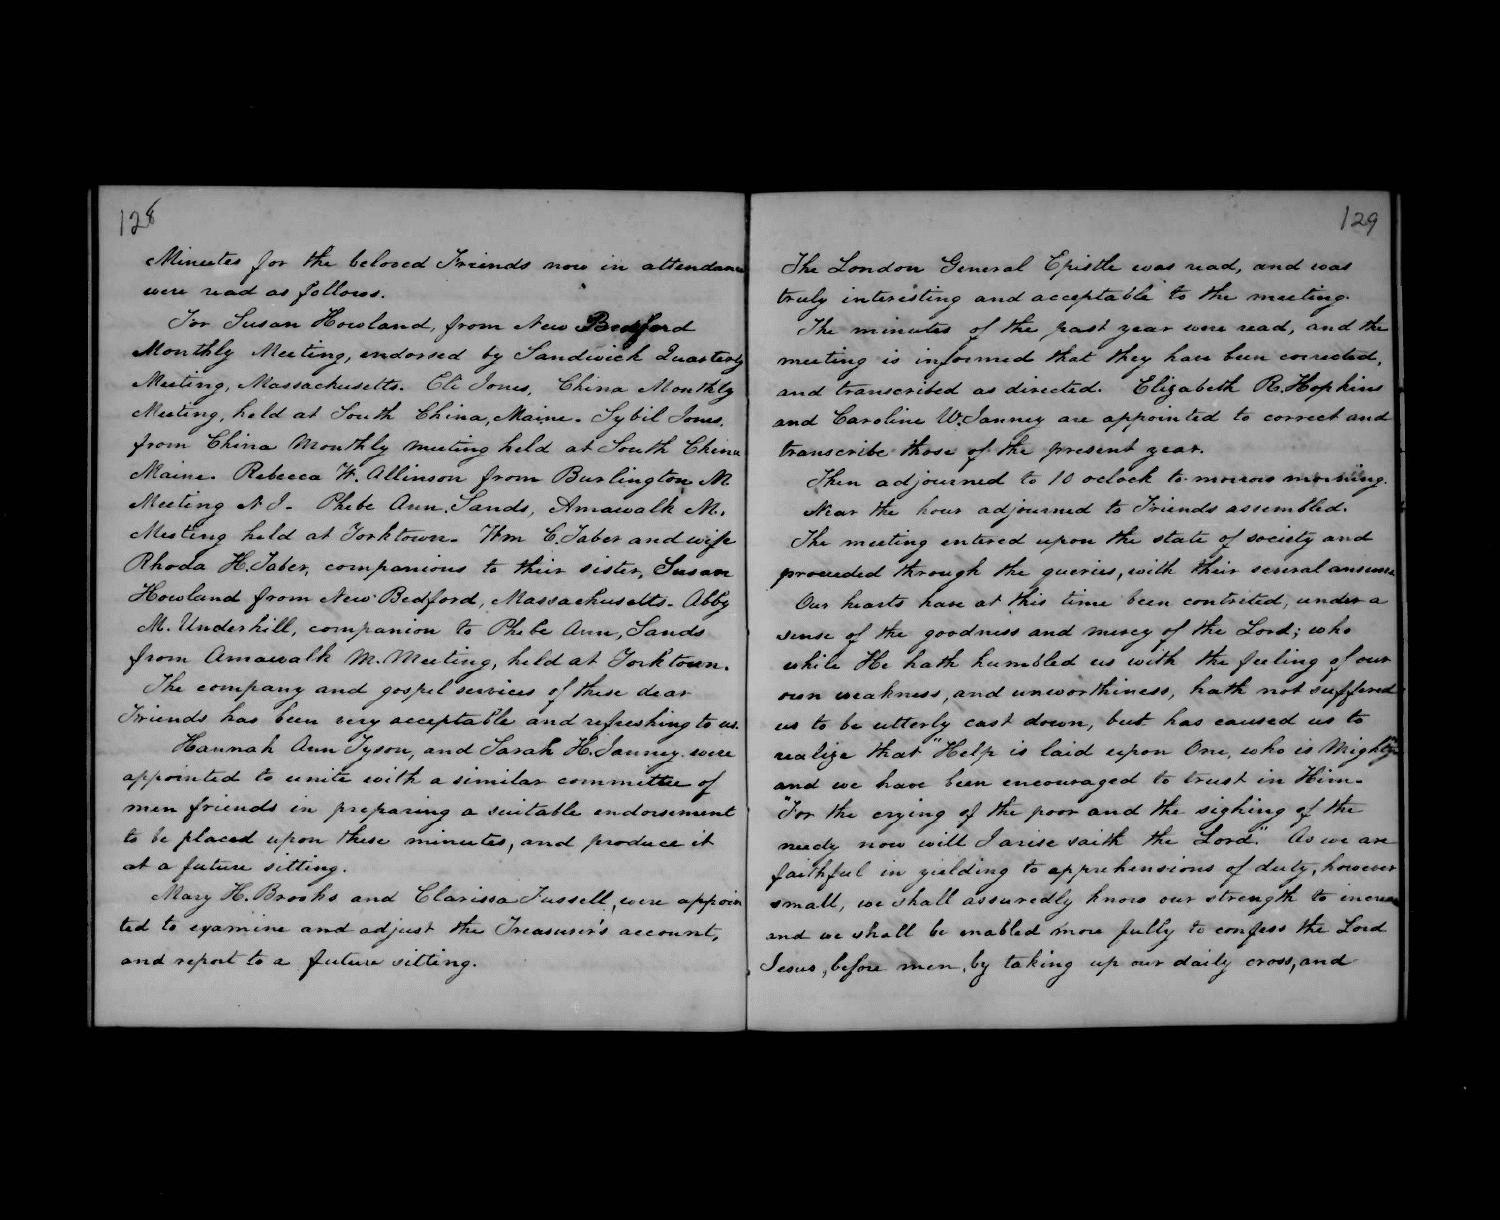 128
Minutes for the beloved Friends now in attendance
were read as follows.
For Susan Howland, from New Bedford
Monthly Meeting, endorsed by Sandwich Quarterly
Meeting, Massachusetts. Eli Jones, China Monthly
Meeting, held at South China, Maine. Sybil Jones,
from China Monthly meeting held at South China
Maine. Rebecca W. Allinson from Burlington M
Meeting N J. Phebe Ann, Sands, Amawalk M.
Meeting held at Yorktown. Wm C. Taber and wife
Rhoda H. Taber, companions to their sister, Susan
Howland from New Bedford, Massachusetts. Abby
M. Underhill, companion to Phebe Ann, Sands
from Amawalk M. Meeting, held at Yorktown.
The company and gospel services of these dear
Friends has been very acceptable and refreshing to us.
Hannah Ann Tyson, and Sarah H. Janney were
appointed to unite with a similar committee of
men friends in preparing a suitable endorsement
to be placed upon these minutes, and produce it
at a future sitting.
Mary H. Brooks and Clarissa Fussell, were appoin
ted to examine and adjust the Treasurer's account,
and report to a future sitting.
129
The London General Epistle was read, and was
truly interesting and acceptable to the meeting.
The minutes of the past year were read, and the
meeting is informed that they have been corrected,
and transcribed as directed. Elizabeth R. Hopkins
and Caroline W. Janney are appointed to correct and
transcribe those of the present year.
Then adjourned to 10 oclock to-morrow morning.
Near the hour adjourned to Friends assembled.
The meeting entered upon the state of society and
proceeded through the queries, with their several answers
Our hearts have at this time been contrited, under a
sense of the goodness and mercy of the Lord; who
while He hath humbled us with the feeling of our
own weakness, and unworthiness, hath not suffered
us to be utterly cast down, but has caused us to
realize that "Help is laid upon One, who is Mighty"
and we have been encouraged to trust in Him.
"For the crying of the poor and the sighing of the
needy now will I arise saith the Lord." As we are
faithful in yielding to apprehensions of duty, however
small, we shall assuredly know our strength to increase
and we shall be enabled more fully to confess the Lord
Jesus, before men, by taking up our daily cross, and